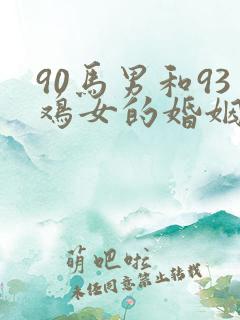 90馬男和93
鸡女的婚姻
萌吧啦
未经同意禁止转载